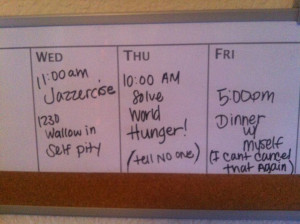 WED
11:00am
Jazzercise
1230
Wallow in
Self pity
THU
10:00 AM
Solve
World
Hunger!
(tell NO ONE)
FRI
5:00pm
Dinner
w/
myself
(I cant cancel
that Again)